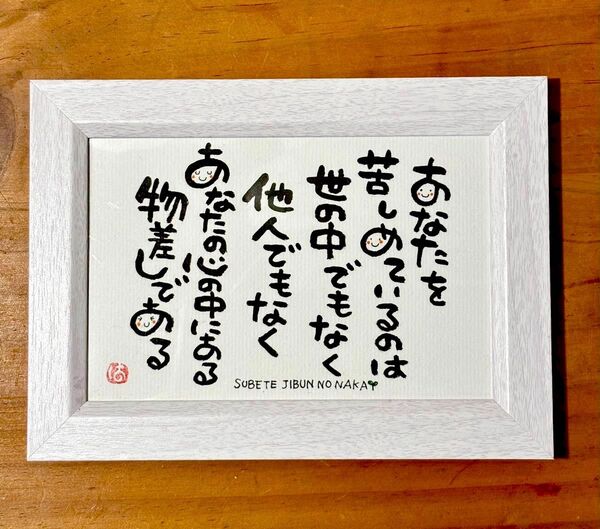 あなたを
苦しめているのは
世の中でもなく
他人でもなく
あなたの心の中にある
物差しである
SUBETE JIBUN NO NAKA